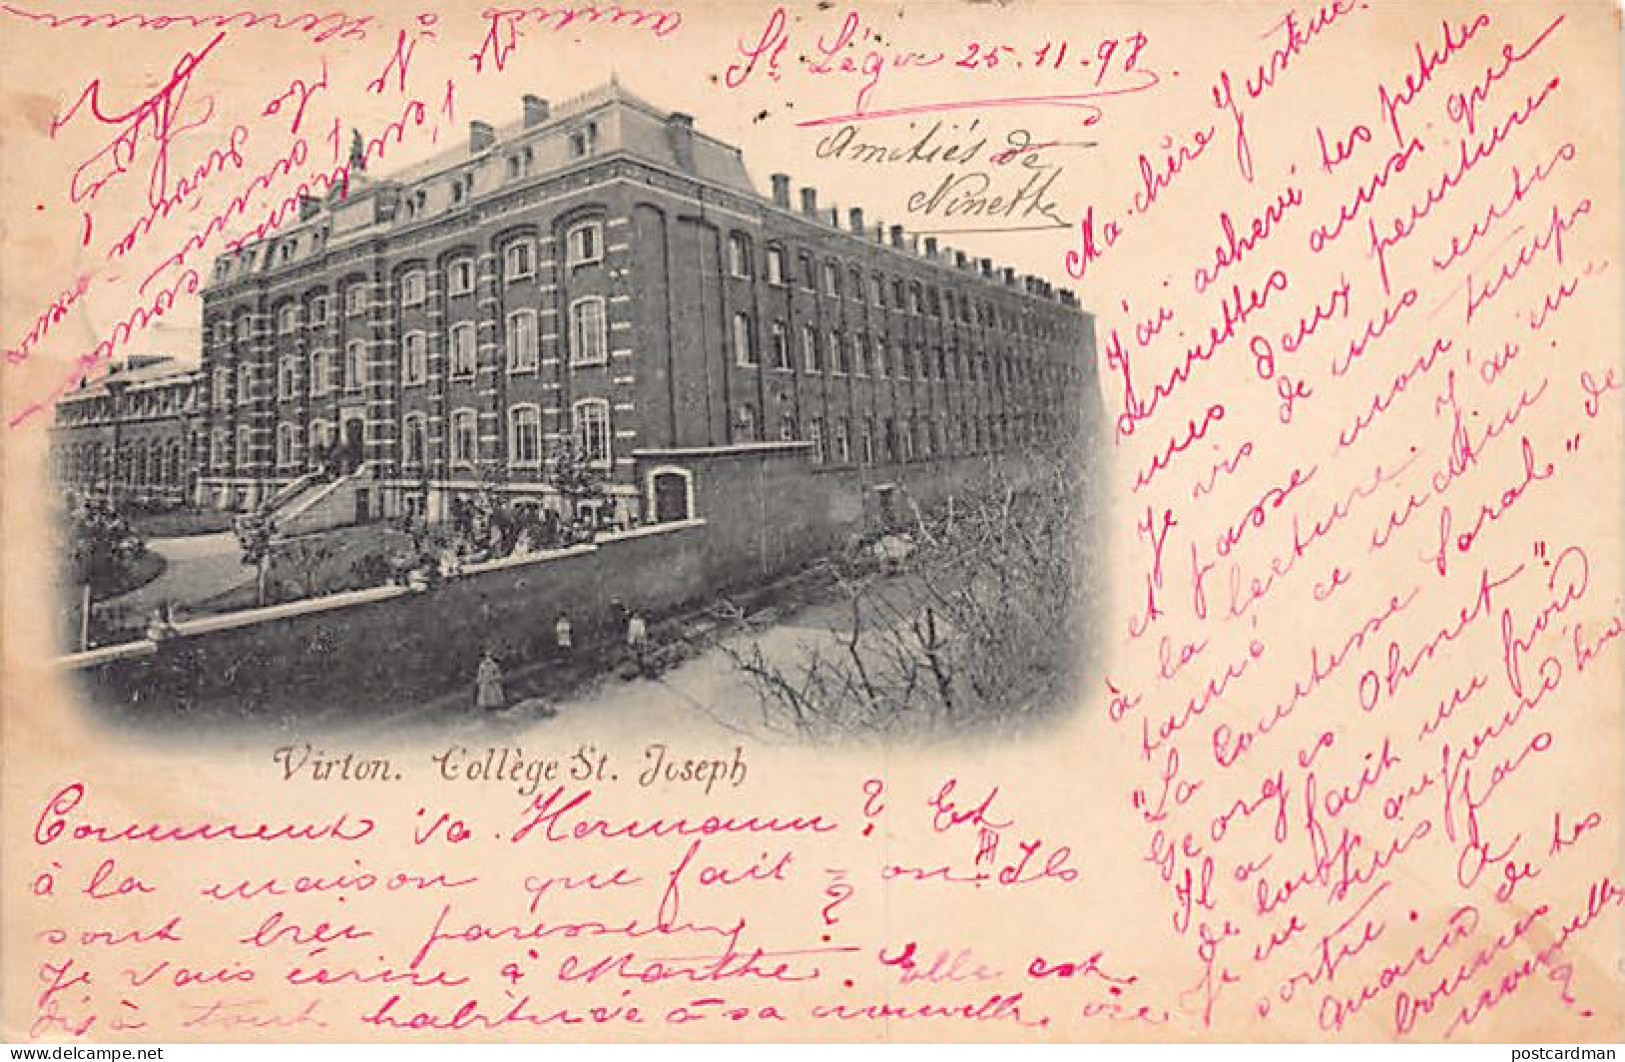 St Léger 25.11.98.
Amitiés de
Ninette
Ma chère Justine.
J'ai achevé tes petites
serviettes ainsi que
mes deux peintures
Je vis de mes rentes
et passe mon temps
à la lecture. J'ai en-
tamé ce matin
"La Comtesse Sarah" de
Georges Ohnet"
Il a fait un froid
de loup aujourd'hui
Je ne suis pas
sortie. A
quand de tes
bonnes
nouvelles?
Virton. Collège St. Joseph
Comment va Hermann? Est
à la maison que fait-on? Ils
sont bien paresseux
Je vais écrire à Marthe. Elle est
déjà tout habituée à sa nouvelle vie.
Je
amitiés à Hermann
postcardman